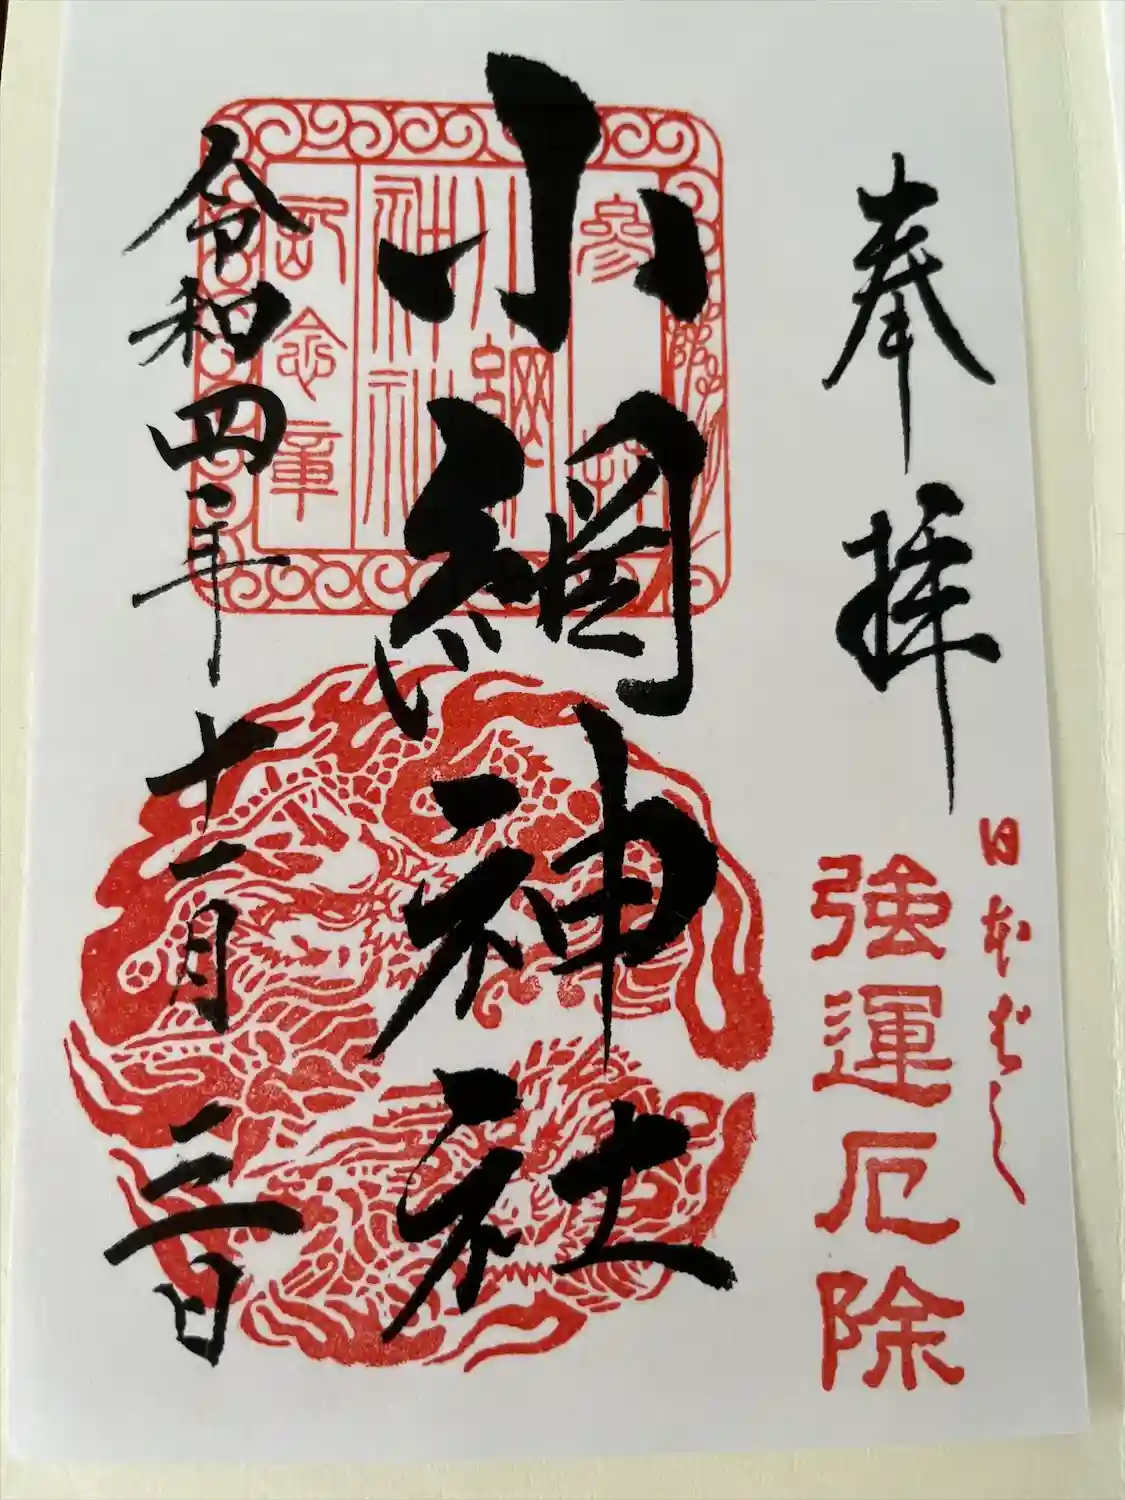 日本ばし
奉拝
強運厄除
小網神社
参拝
小網神社
記念章
令和四年十一月二日